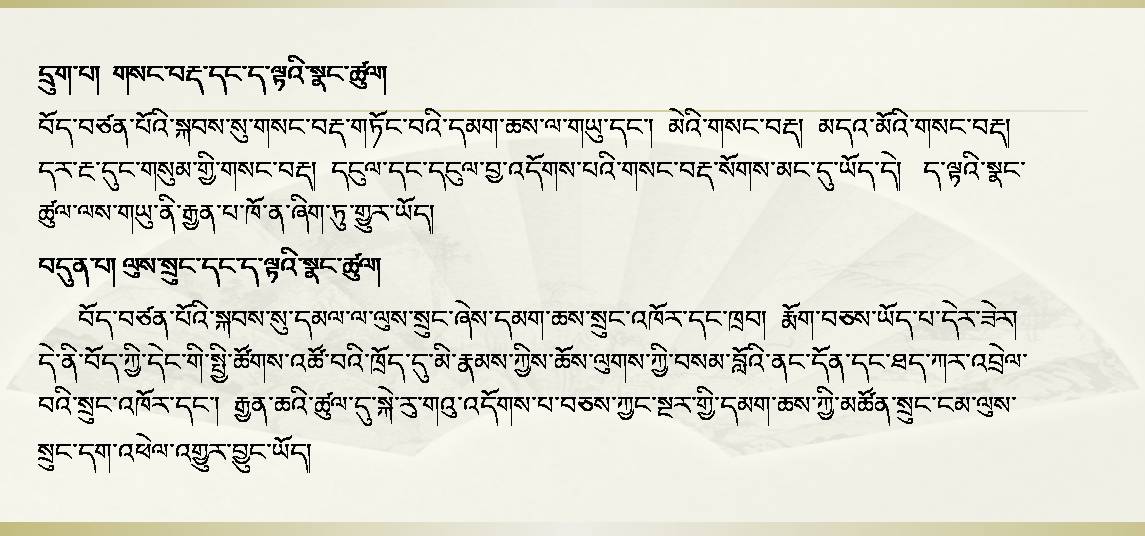 དྲུག་པ། གསང་བརྡ་དང་ད་ལྟའི་སྣང་ཚུལ།
བོད་བཙན་པོའི་སྐབས་སུ་གསང་བརྡ་གཏོང་བའི་དམག་ཆས་ལ་གཡུ་དང་། མེའི་གསང་བརྡ། མདའ་མོའི་གསང་བརྡ།
དར་རྔ་དུང་གསུམ་གྱི་གསང་བརྡ། དངུལ་དང་དངུལ་བྱ་འདོགས་པའི་གསང་བརྡ་སོགས་མང་དུ་ཡོད་དེ། ད་ལྟའི་སྣང་
ཚུལ་ལས་གཡུ་ནི་རྒྱན་པ་ཁོ་ན་ཞིག་ཏུ་གྱུར་ཡོད།
བདུན་པ། ལུས་སྲུང་དང་ད་ལྟའི་སྣང་ཚུལ།
བོད་བཙན་པོའི་སྐབས་སུ་དམལ་ལ་ལུས་སྲུང་ཞེས་དམག་ཆས་སྲུང་འཁོར་དང་ཁྲབ། རྨོག་བཅས་ཡོད་པ་དེར་ཟེར།
དེ་ནི་བོད་ཀྱི་དེང་གི་སྤྱི་ཚོགས་འཚོ་བའི་ཁྲོད་དུ་མི་རྣམས་ཀྱིས་ཆོས་ལུགས་ཀྱི་བསམ་བློའི་ནང་དོན་དང་ཐད་ཀར་འབྲེལ་
བའི་སྲུང་འཁོར་དང་། རྒྱན་ཆའི་ཚུལ་དུ་སྐེ་རུ་གའུ་འདོགས་པ་བཅས་ཀྱང་སྔར་གྱི་དམག་ཆས་ཀྱི་མཚོན་སྲུང་ངམ་ལུས་
སྲུང་དག་འཕེལ་འགྱུར་བྱུང་ཡོད།